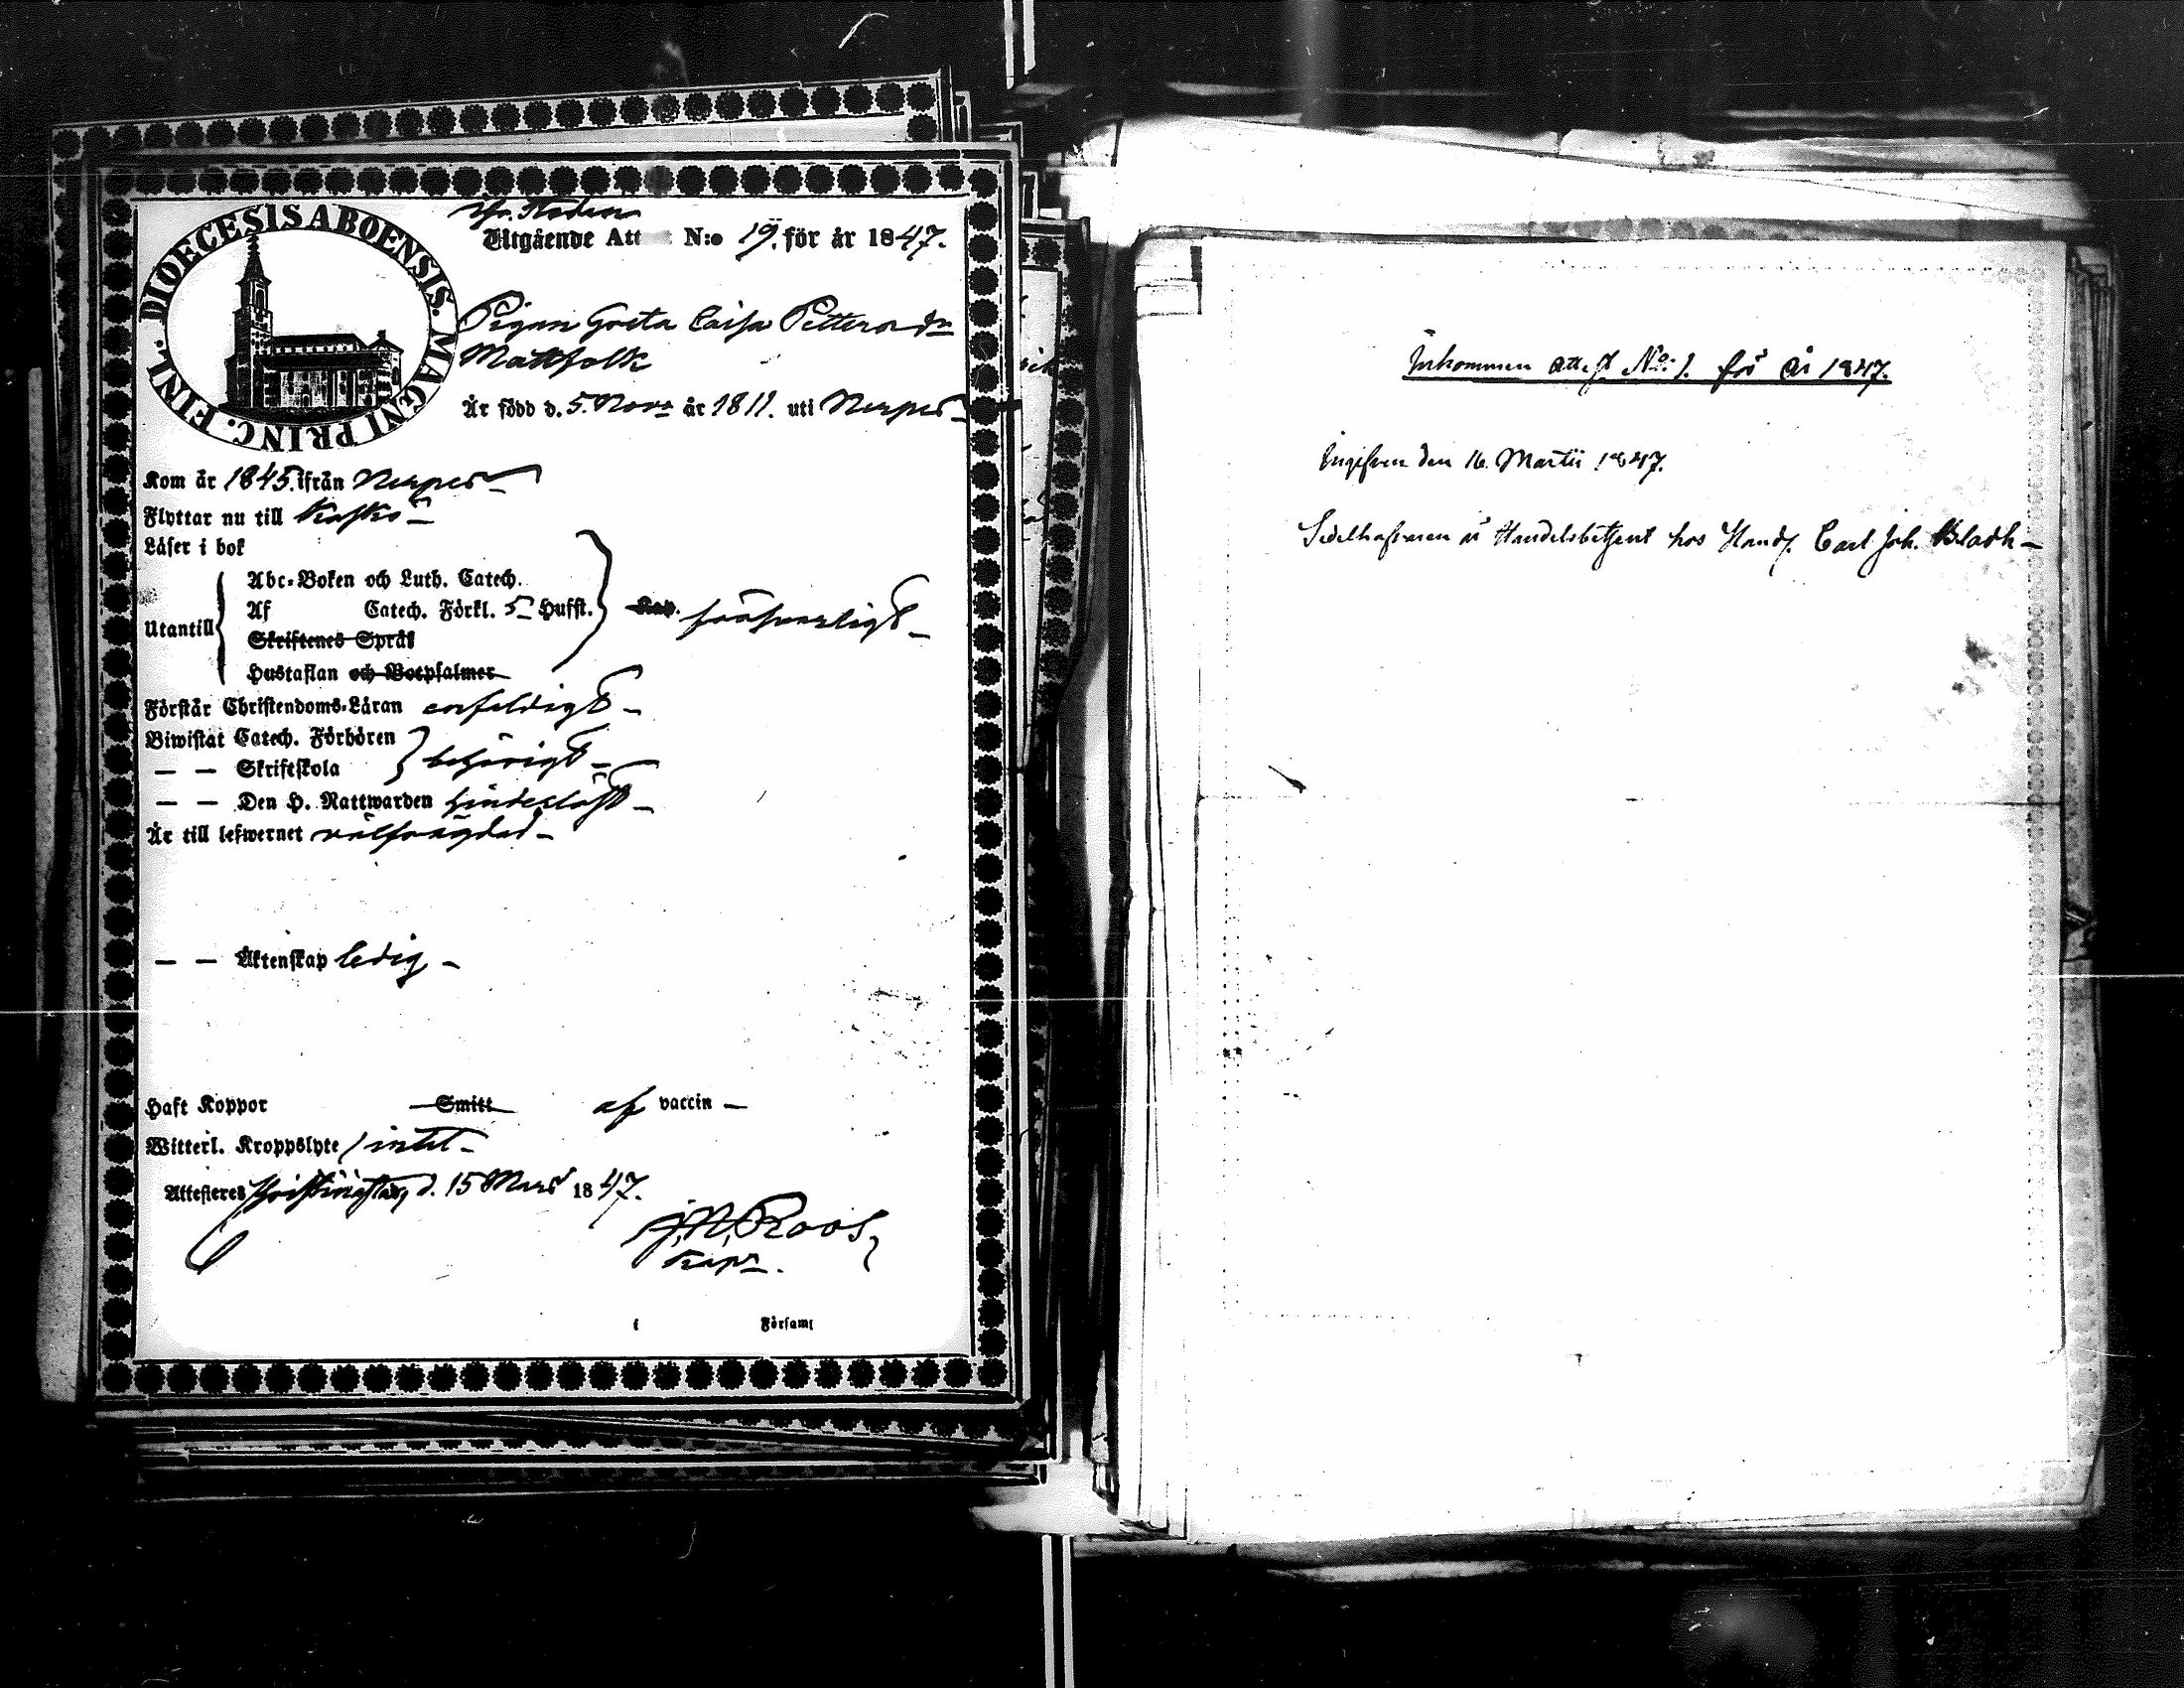 DIOECESIS ABOENSIS. MAGNI PRINC. FINL.
Utgående Att N:o 19. för år 1847.
Pigan Greta Caisa Pettersdr
Mattfolk
Är född d. 5. Novr år 1811. uti Nerpes
Kom år 1845. ifrån Nerpes
Flyttar nu till Kaskö
Läser i bok
Utantill
Abc-Boken och Luth. Catech.
Af Catech. Förkl. 5 Hufst.
Skriftenes Språk
Hustaflan och Botpsalmer
Kap. försvarligt
Förstår Christendoms-Läran enfaldigt
Biwistat Catech. Förhören
— — Skriftskola behörigt
— — Den H. Nattwarden hinderlöst
Är till lefwernet välfrägdad
— — Äktenskap ledig
Haft Koppor Smitt af vaccin
Witterl. Kroppslyte intet
Attesteras Christinestad d. 15 Mars 1847.
J. N. Roos,
Kapn.
i Församl
Inkommen attest No: 1. för år 1847.
Ingifven den 16. Martii 1847.
Sedelhafvaren är Handelsbetjent hos Handl. Carl Joh. Bladh